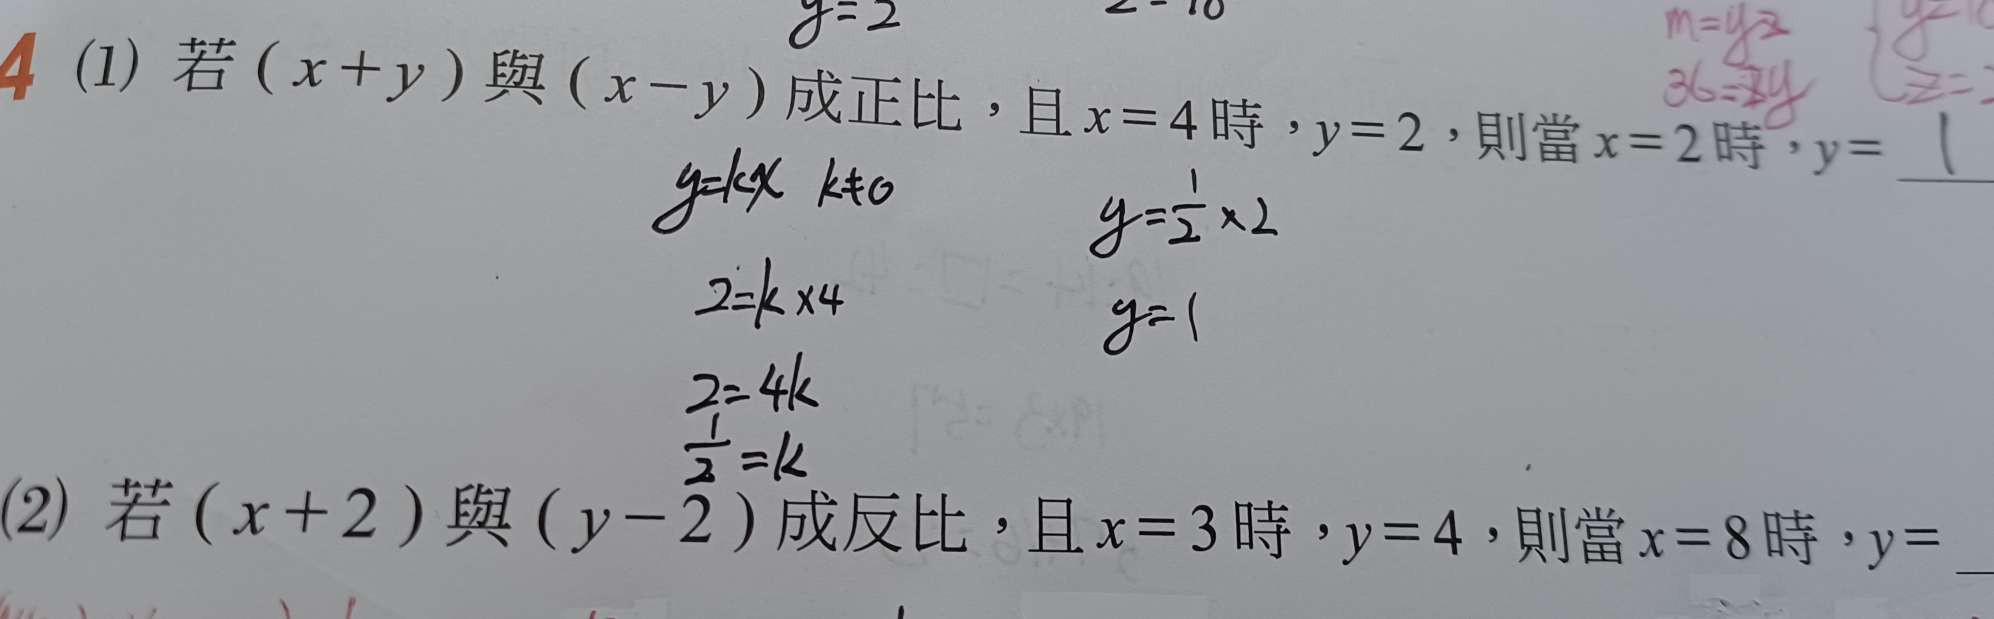 y=2
m=yz
36=zy
4 (1) 若(x+y)與(x-y)成正比，且x=4時，y=2，則當x=2時，y= 1
y=kx k≠0
2=k×4
2=4k
1/2=k
y=1/2×2
y=1
(2) 若(x+2)與(y-2)成反比，且x=3時，y=4，則當x=8時，y=